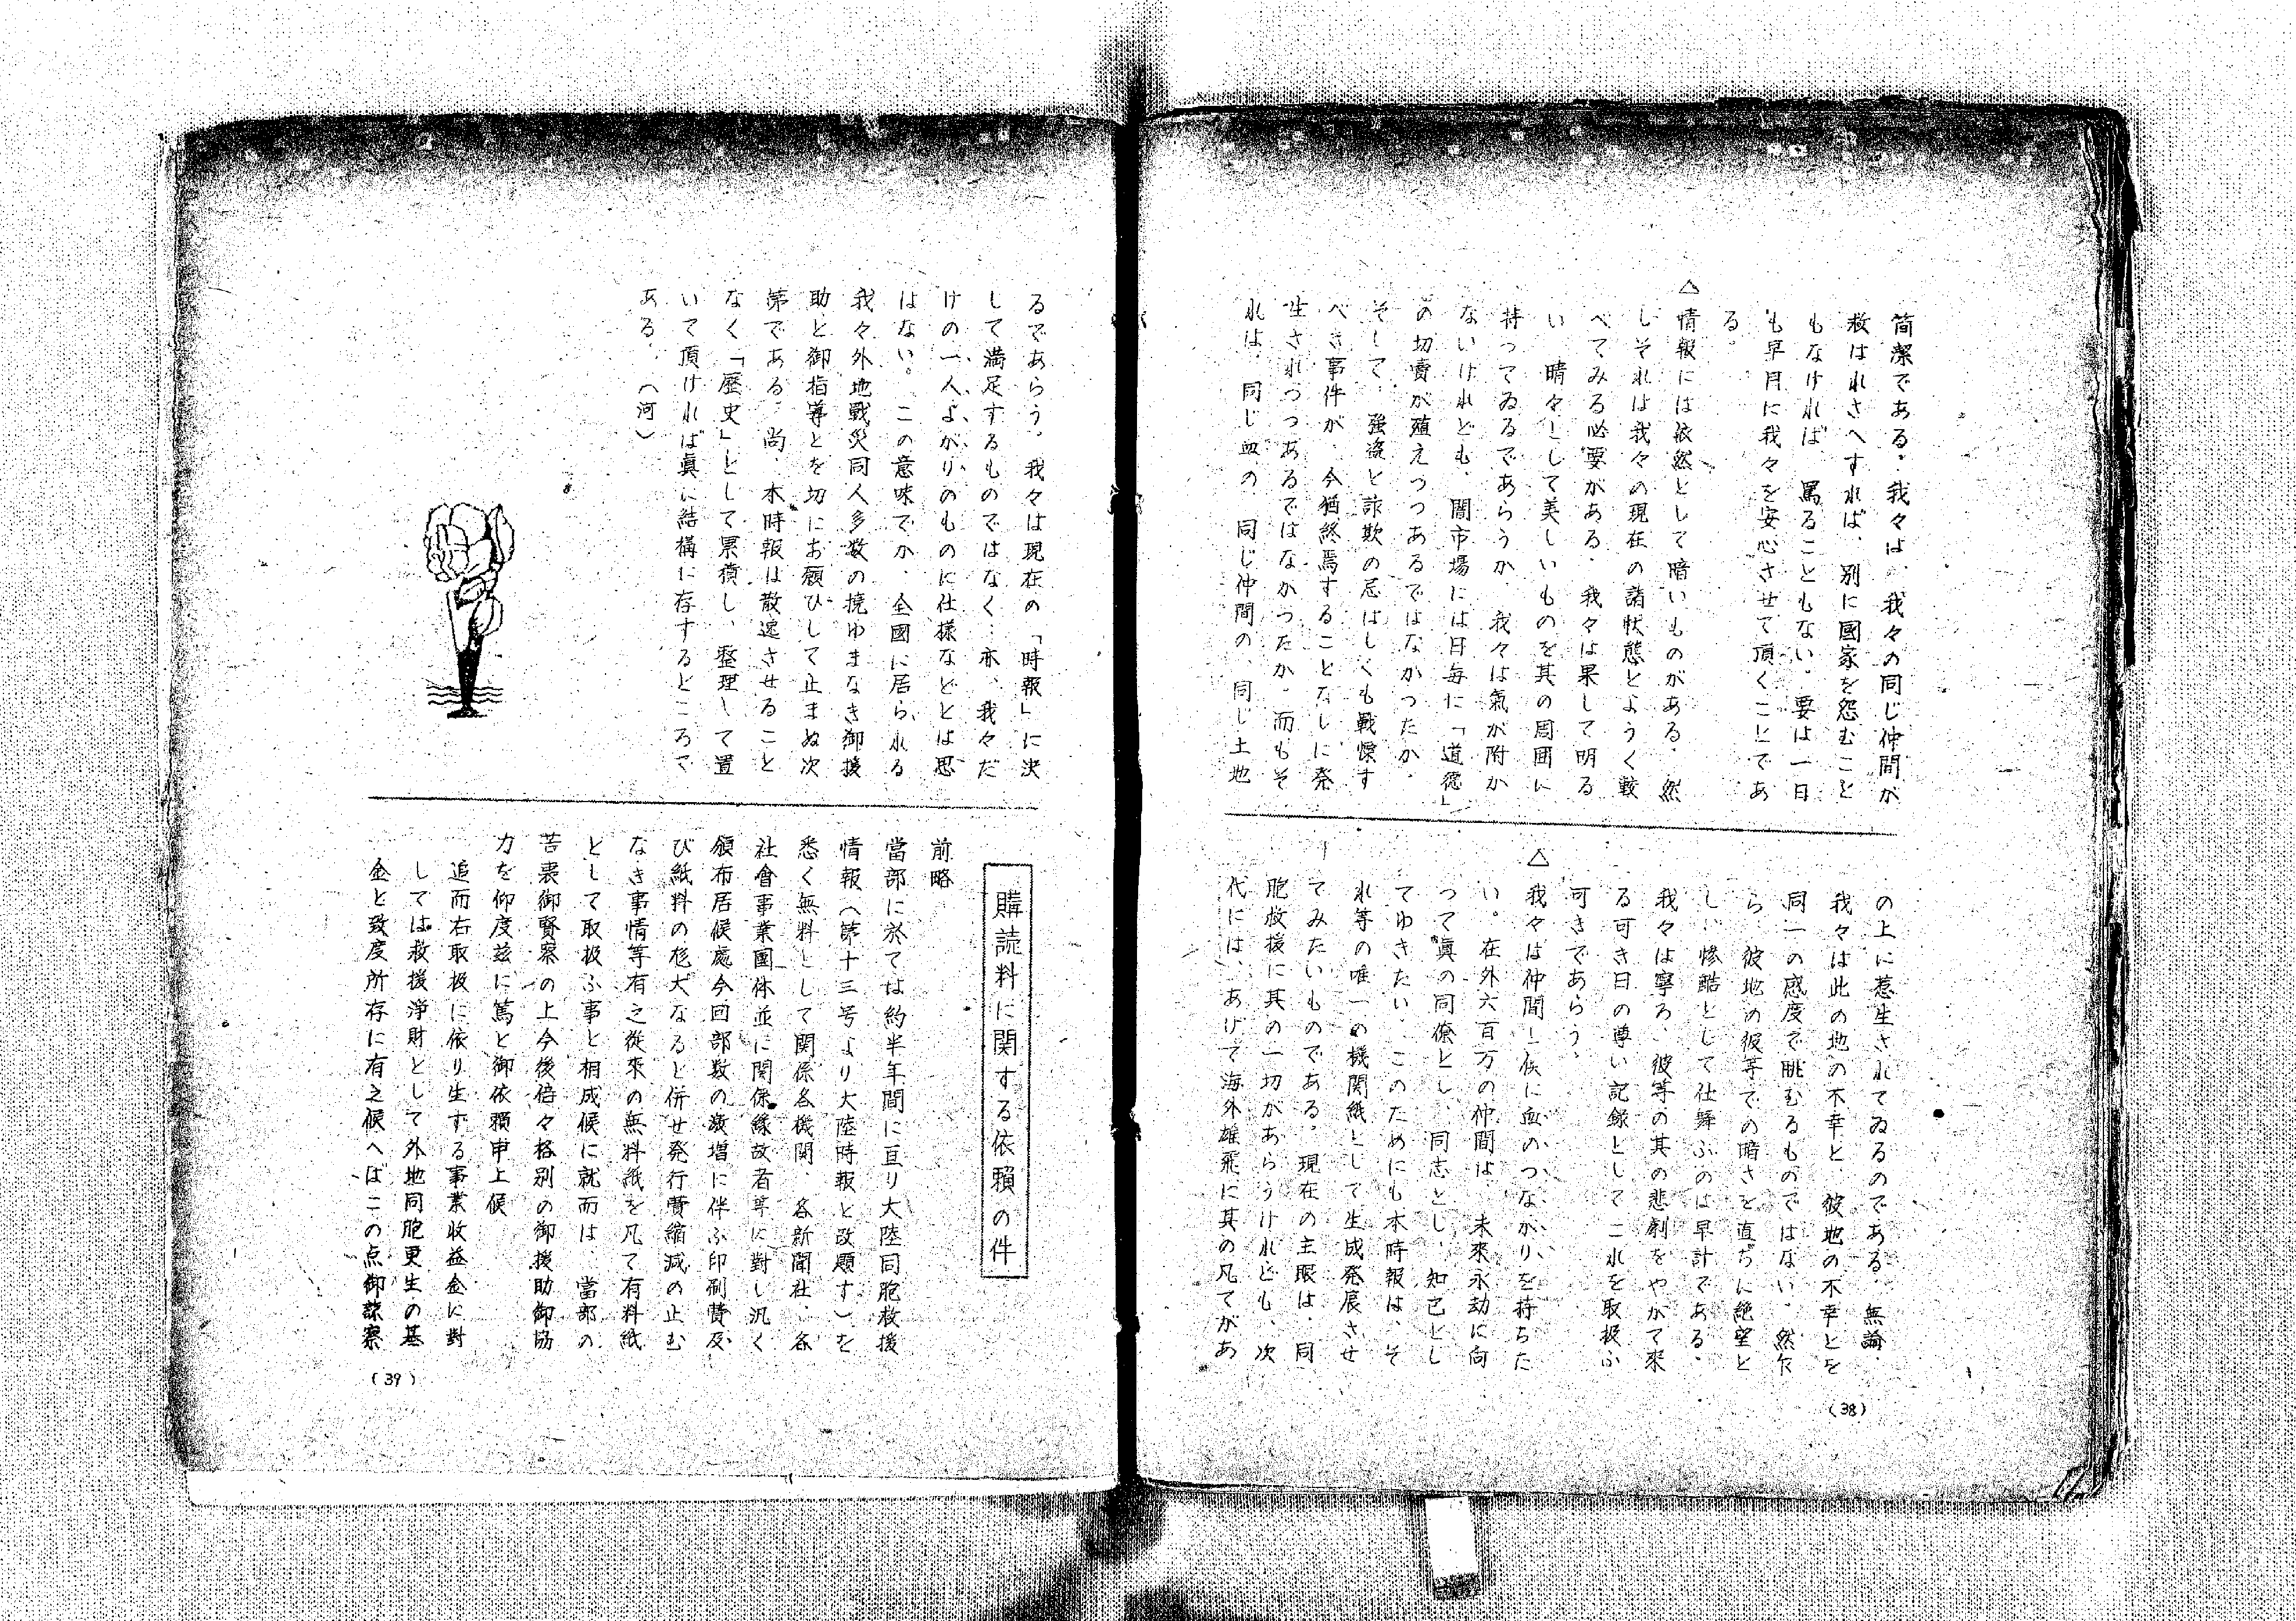 簡潔である。我々は、我々の同じ仲間が
救はれさへすれば、別に國家を怨むこと
もなければ、罵ることもない。要は一日
も早目に我々を安心させて頂くことであ
る。
△情報には依然として暗いものがある。然
しそれは我々の現在の諸状態とようく較
べてみる必要がある。我々は果して明る
い、晴々として美しいものを其の周囲に
持ってゐるであらうか、我々は氣が附か
ないけれども、闇市場には日毎に「道徳」
の切賣が殖えつつあるではなかつたか。
そして、強盗と詐欺の忌はしくも戰慄す
べき事件が、今猶終焉することなしに発
生されつつあるではなかつたか。而もそ
れは、同じ血の、同じ仲間の、同じ土地
の上に惹生されてゐるのである。無論、
我々は此の地の不幸と、彼地の不幸とを
同一の感度で眺むるものではない。然乍
ら、彼地の彼等での暗さを直ぢに絶望と
しい惨酷として仕舞ふのは早計である。
我々は寧ろ、彼等の其の悲劇をやがて來
る可き日の尊い記録としてこれを取扱ふ
可きであらう。
△我々は仲間し候に血のつながりを持ちた
い。在外六百万の仲間は、未來永劫に向
つて眞の同僚とし、同志とし、知己とし
てゆきたい。このためにも本時報は、そ
れ等の唯一の機関紙として生成発展させ
てみたいものである。現在の主眼は、同
胞救援に其の一切があらうけれども、次
代には、あげて海外雄飛に其の凡てがあ
(38)
るであらう。我々は現在の「時報」に決
して満足するものではなく、亦、我々だ
けの一人よがりのものに仕様などとは思
はない。この意味でか、全國に居られる
我々外地戰災同人多数の撓ゆまなき御援
助と御指導とを切にお願ひして止まぬ次
第である。尚、本時報は散逸させること
なく「歴史」として累積し、整理して置
いて頂ければ眞に結構に存ずるところで
ある。（河）
購読料に関する依頼の件
前略
當部に於ては約半年間に亘り大陸同胞救援
情報（第十三号より大陸時報と改題す）を
悉く無料として関係各機関、各新聞社、各
社會事業國体並に関係縁故者等に對し汎く
頒布居候處今回部数の激増に伴ふ印刷費及
び紙料の厖大なると併せ発行費縮減の止む
なき事情等有之從來の無料紙を凡て有料紙
として取扱ふ事と相成候に就而は、當部の
苦衷御賢察の上今後倍々格別の御援助御協
力を仰度玆に篤と御依賴申上候
追而右取扱に依り生ずる事業收益金に對
しては救援浄財として外地同胞更生の基
金と致度所存に有之候へばこの点御諒察
(39)